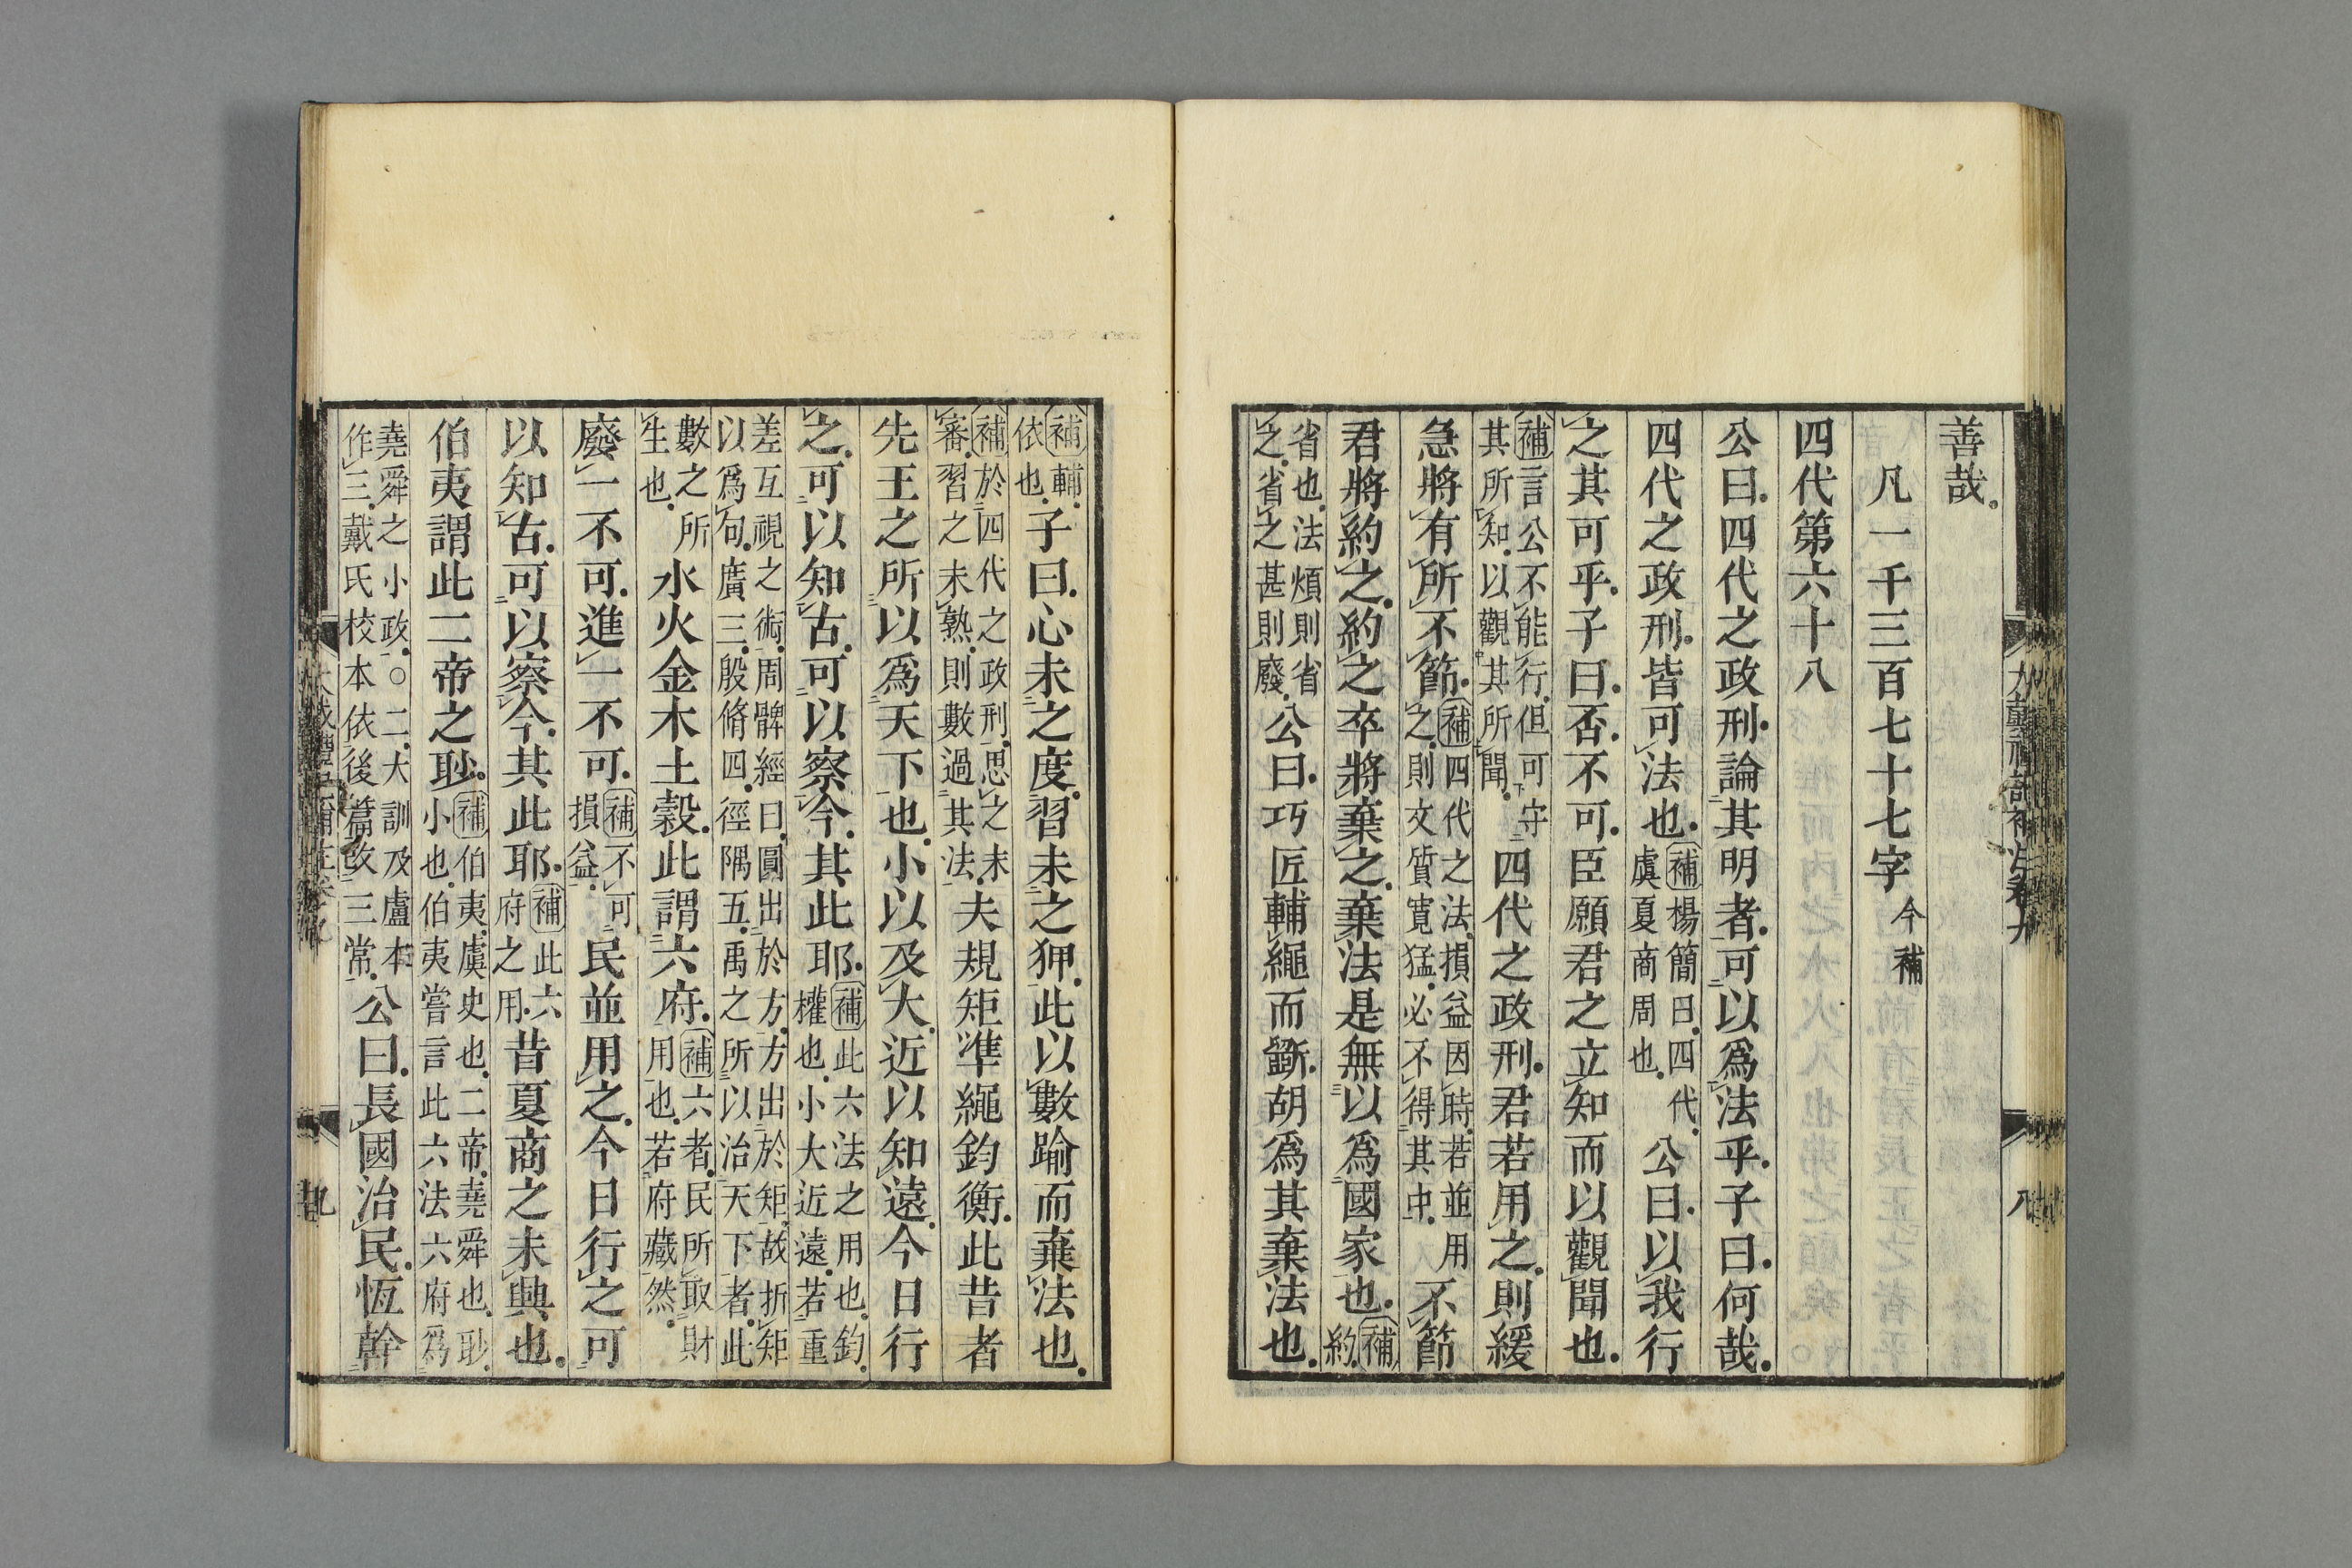 善哉
凡一千三百七十七字今補
四代第六十八
公曰四代之政刑論其明者可以爲法乎子曰何哉
四代之政刑皆可法也補楊簡曰四代虞夏商周也公曰以我行
之其可乎子曰否不可臣願君之立知而以觀聞也
補言公不能行但可守其所知以觀其所聞四代之政刑君若用之則緩
急將有所不節補四代之法損益因時若並用之則文質寬猛必不得其中不節
君將約之約之卒將棄之棄法是無以爲國家也補約
省也法煩則省之省之甚則廢公曰巧匠輔繩而斲胡爲其棄法也
補輔依也子曰心未之度習未之狎此以數踰而棄法也
補於四代之政刑思之未審習之未熟則數過其法夫規矩準繩鈞衡此昔者
先王之所以爲天下也小以及大近以知遠今日行
之可以知古可以察今其此耶補此六法之用也鈞權也小大近遠若重
差互視之術周髀經曰圓出於方方出於矩故折矩以爲句廣三殷脩四徑隅五禹之所以治天下者此
數之所生也水火金木土穀此謂六府補六者民所取財用也若府藏然
廢一不可進一不可補不可損益民並用之今日行之可
以知古可以察今其此耶補此六府之用昔夏商之未興也
伯夷謂此二帝之眇補伯夷虞史也二帝堯舜也眇小也伯夷嘗言此六法六府爲
堯舜之小政○二大訓及盧本作三戴氏校本依後篇改三常公曰長國治民恆幹